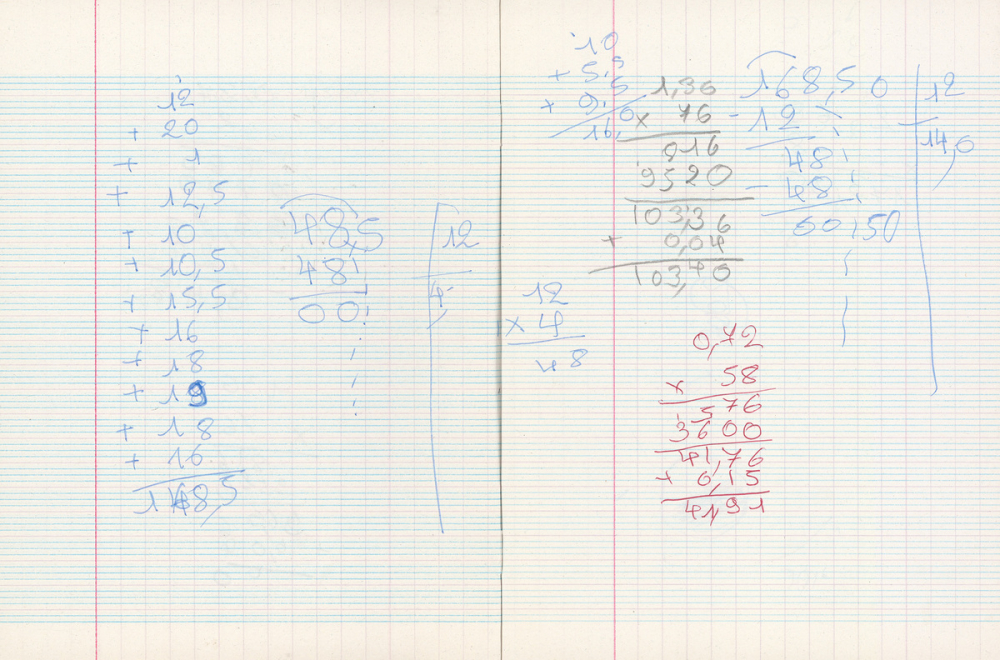 12
+ 20
+ 1
+ 12,5
+ 10
+ 10,5
+ 15,5
+ 16
+ 18
+ 19
+ 18
+ 16
168,5
48,5 | 12
48 | 4,
00
10
+ 5,5
+ 0,5
16,0
1,36
× 76
816
9520
103,36
+ 0,04
103,40
168,50 | 12
- 12 | 14,0
48
- 48
00,50
12
× 4
48
0,72
× 58
576
3600
41,76
+ 0,15
41,91